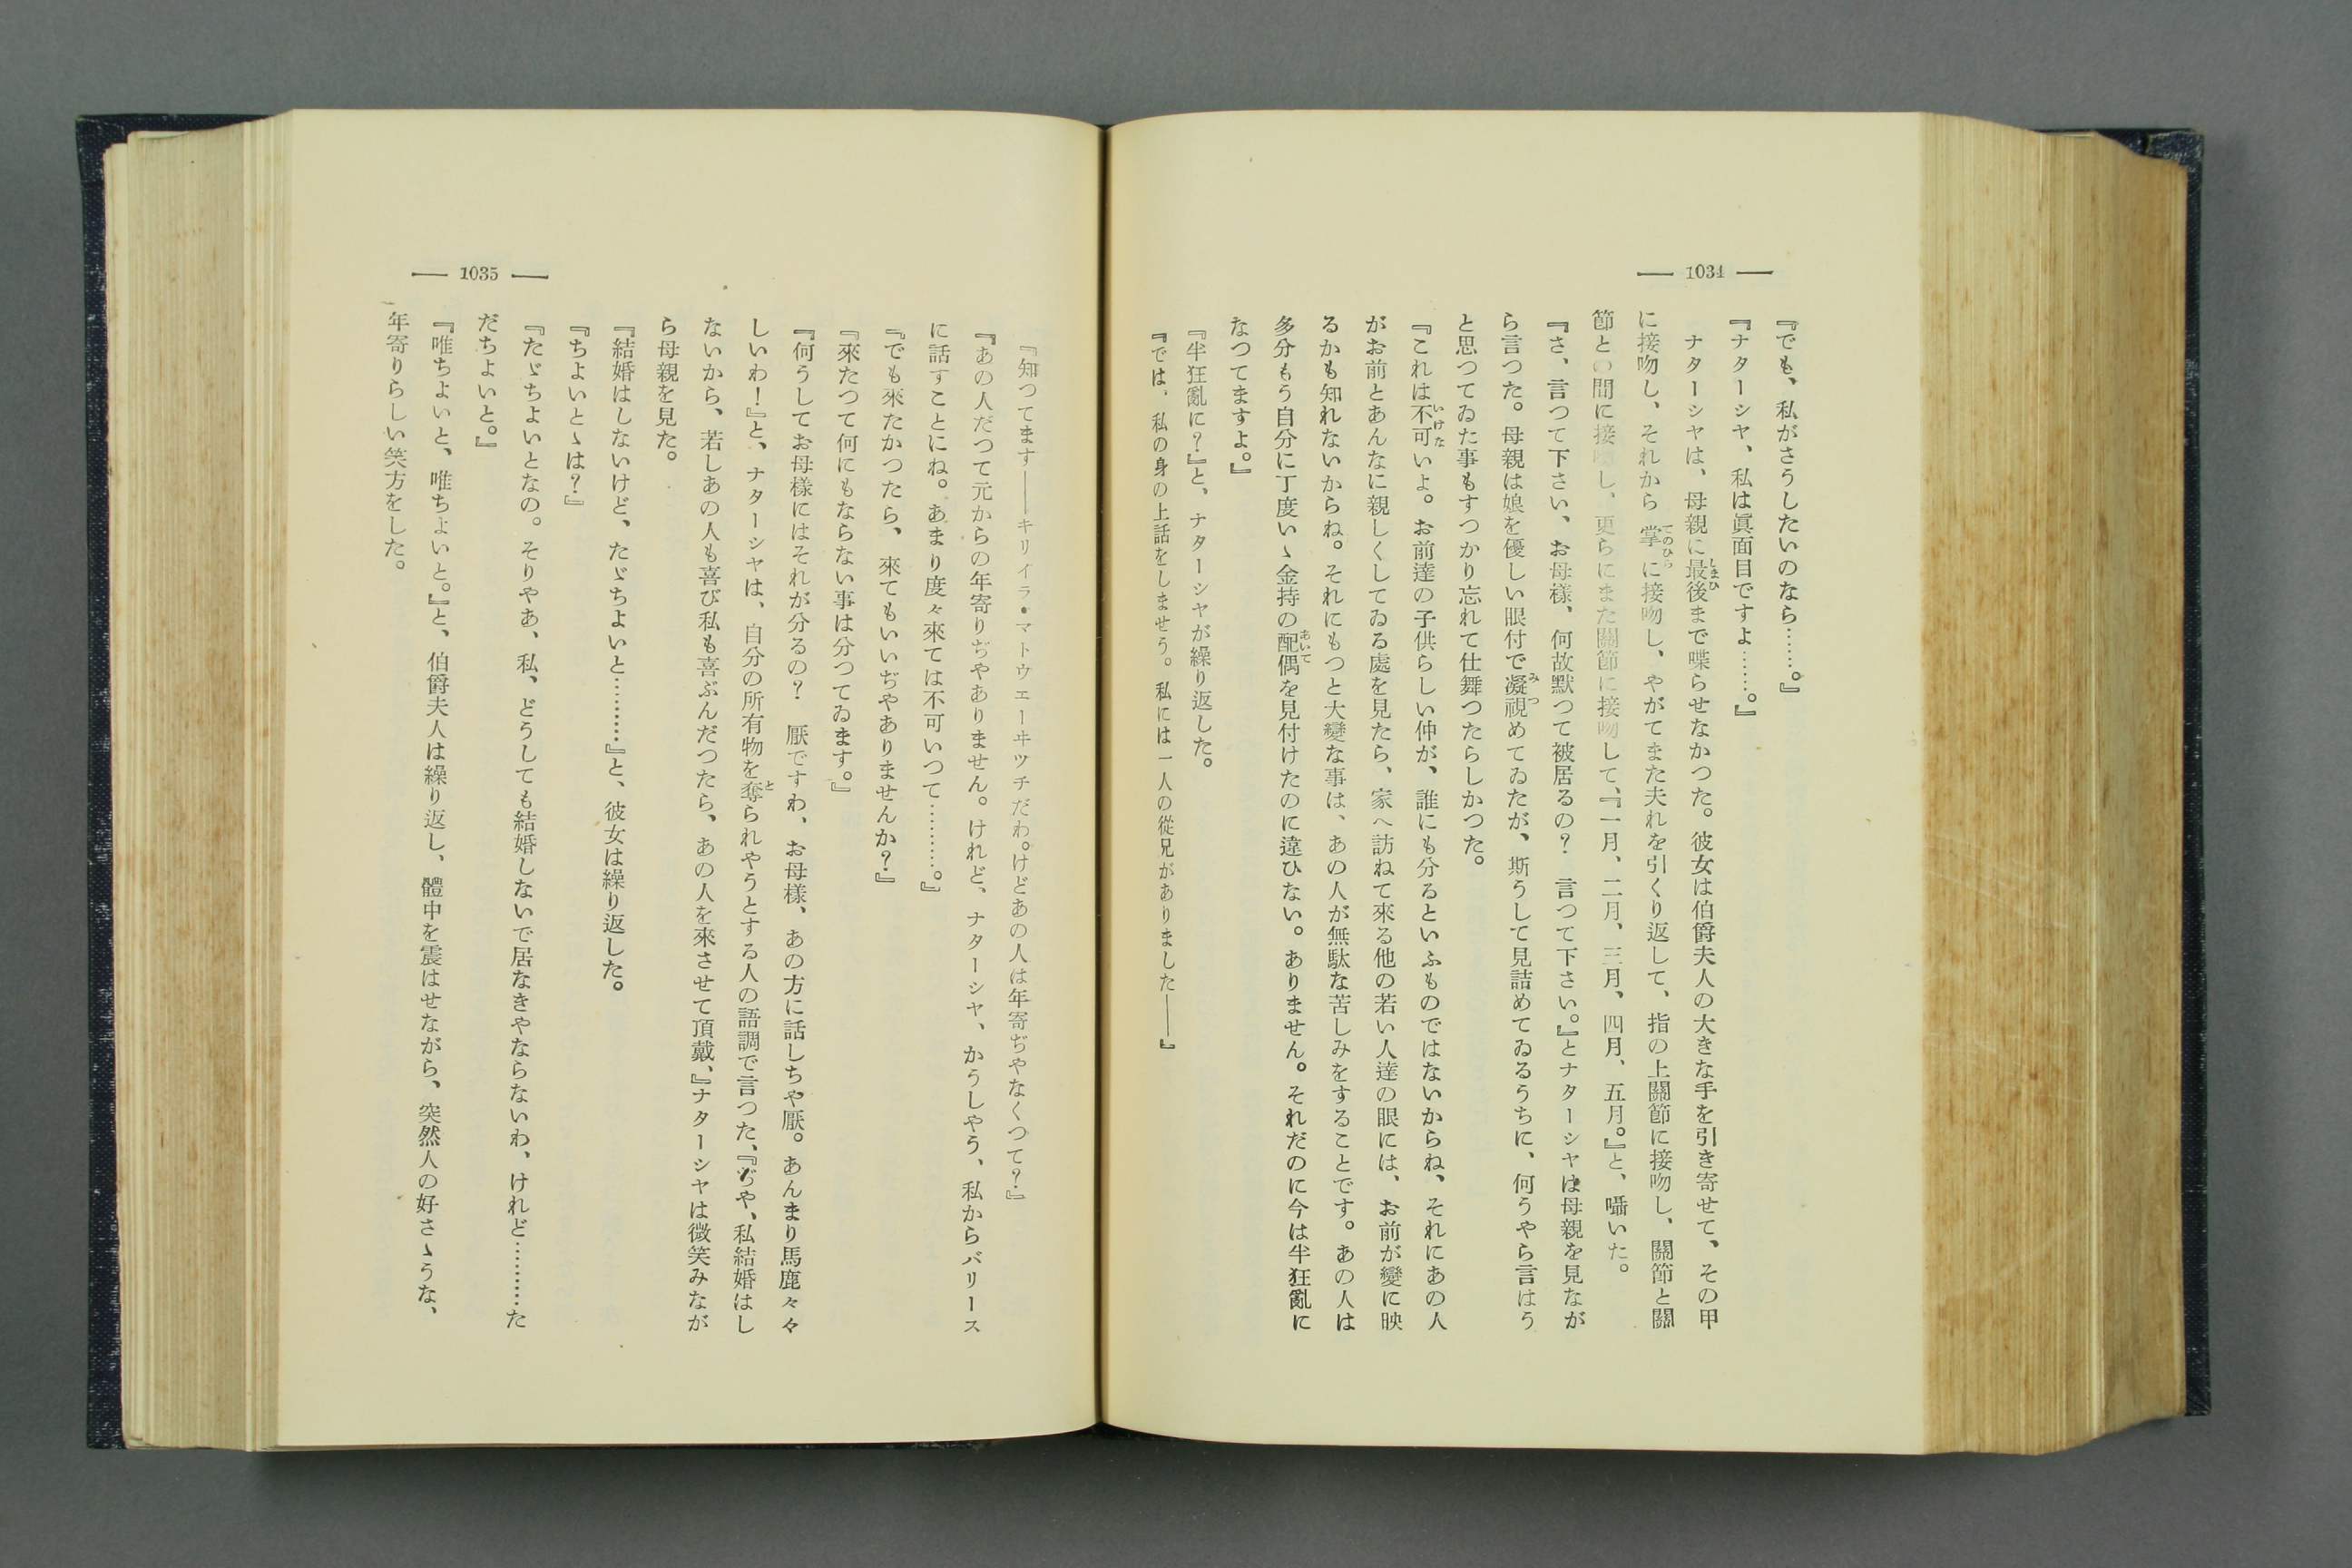 — 1034 —
『でも、私がさうしたいのなら……。』
『ナターシヤ、私は眞面目ですよ……。』
ナターシヤは、母親に最後まで喋らせなかつた。彼女は伯爵夫人の大きな手を引き寄せて、その甲
に接吻し、それから掌に接吻し、やがてまた夫れを引くり返して、指の上關節に接吻し、關節と關
節との間に接吻し、更らにまた關節に接吻して、『一月、二月、三月、四月、五月。』と、囁いた。
『さ、言つて下さい、お母樣、何故默つて被居るの？　言つて下さい。』とナターシヤは母親を見なが
ら言つた。母親は娘を優しい眼付で凝視めてゐたが、斯うして見詰めてゐるうちに、何うやら言はう
と思つてゐた事もすつかり忘れて仕舞つたらしかつた。
『これは不可いよ。お前達の子供らしい仲が、誰にも分るといふものではないからね、それにあの人
がお前とあんなに親しくしてゐる處を見たら、家へ訪ねて來る他の若い人達の眼には、お前が變に映
るかも知れないからね。それにもつと大變な事は、あの人が無駄な苦しみをすることです。あの人は
多分もう自分に丁度いゝ金持の配偶を見付けたのに違ひない。ありません。それだのに今は半狂亂に
なつてますよ。』
『半狂亂に？』と、ナターシヤが繰り返した。
『では、私の身の上話をしませう。私には一人の從兄がありました――』
— 1035 —
『知つてます――キリイラ・マトウエーヰツチだわ。けどあの人は年寄ぢやなくつて？』
『あの人だつて元からの年寄りぢやありません。けれど、ナターシヤ、かうしやう、私からバリース
に話すことにね。あまり度々來ては不可いつて………。』
『でも來たかつたら、來てもいいぢやありませんか？』
『來たつて何にもならない事は分つてゐます。』
『何うしてお母樣にはそれが分るの？　厭ですわ、お母樣、あの方に話しちや厭。あんまり馬鹿々々
しいわ！』と、ナターシヤは、自分の所有物を奪られやうとする人の語調で言つた、『ぢや、私結婚はし
ないから、若しあの人も喜び私も喜ぶんだつたら、あの人を來させて頂戴、』ナターシヤは微笑みなが
ら母親を見た。
『結婚はしないけど、たゞちよいと………』と、彼女は繰り返した。
『ちよいとゝは？』
『たゞちよいとなの。そりやあ、私、どうしても結婚しないで居なきやならないわ、けれど………た
だちよいと。』
『唯ちよいと、唯ちよいと。』と、伯爵夫人は繰り返し、體中を震はせながら、突然人の好さゝうな、
年寄りらしい笑方をした。